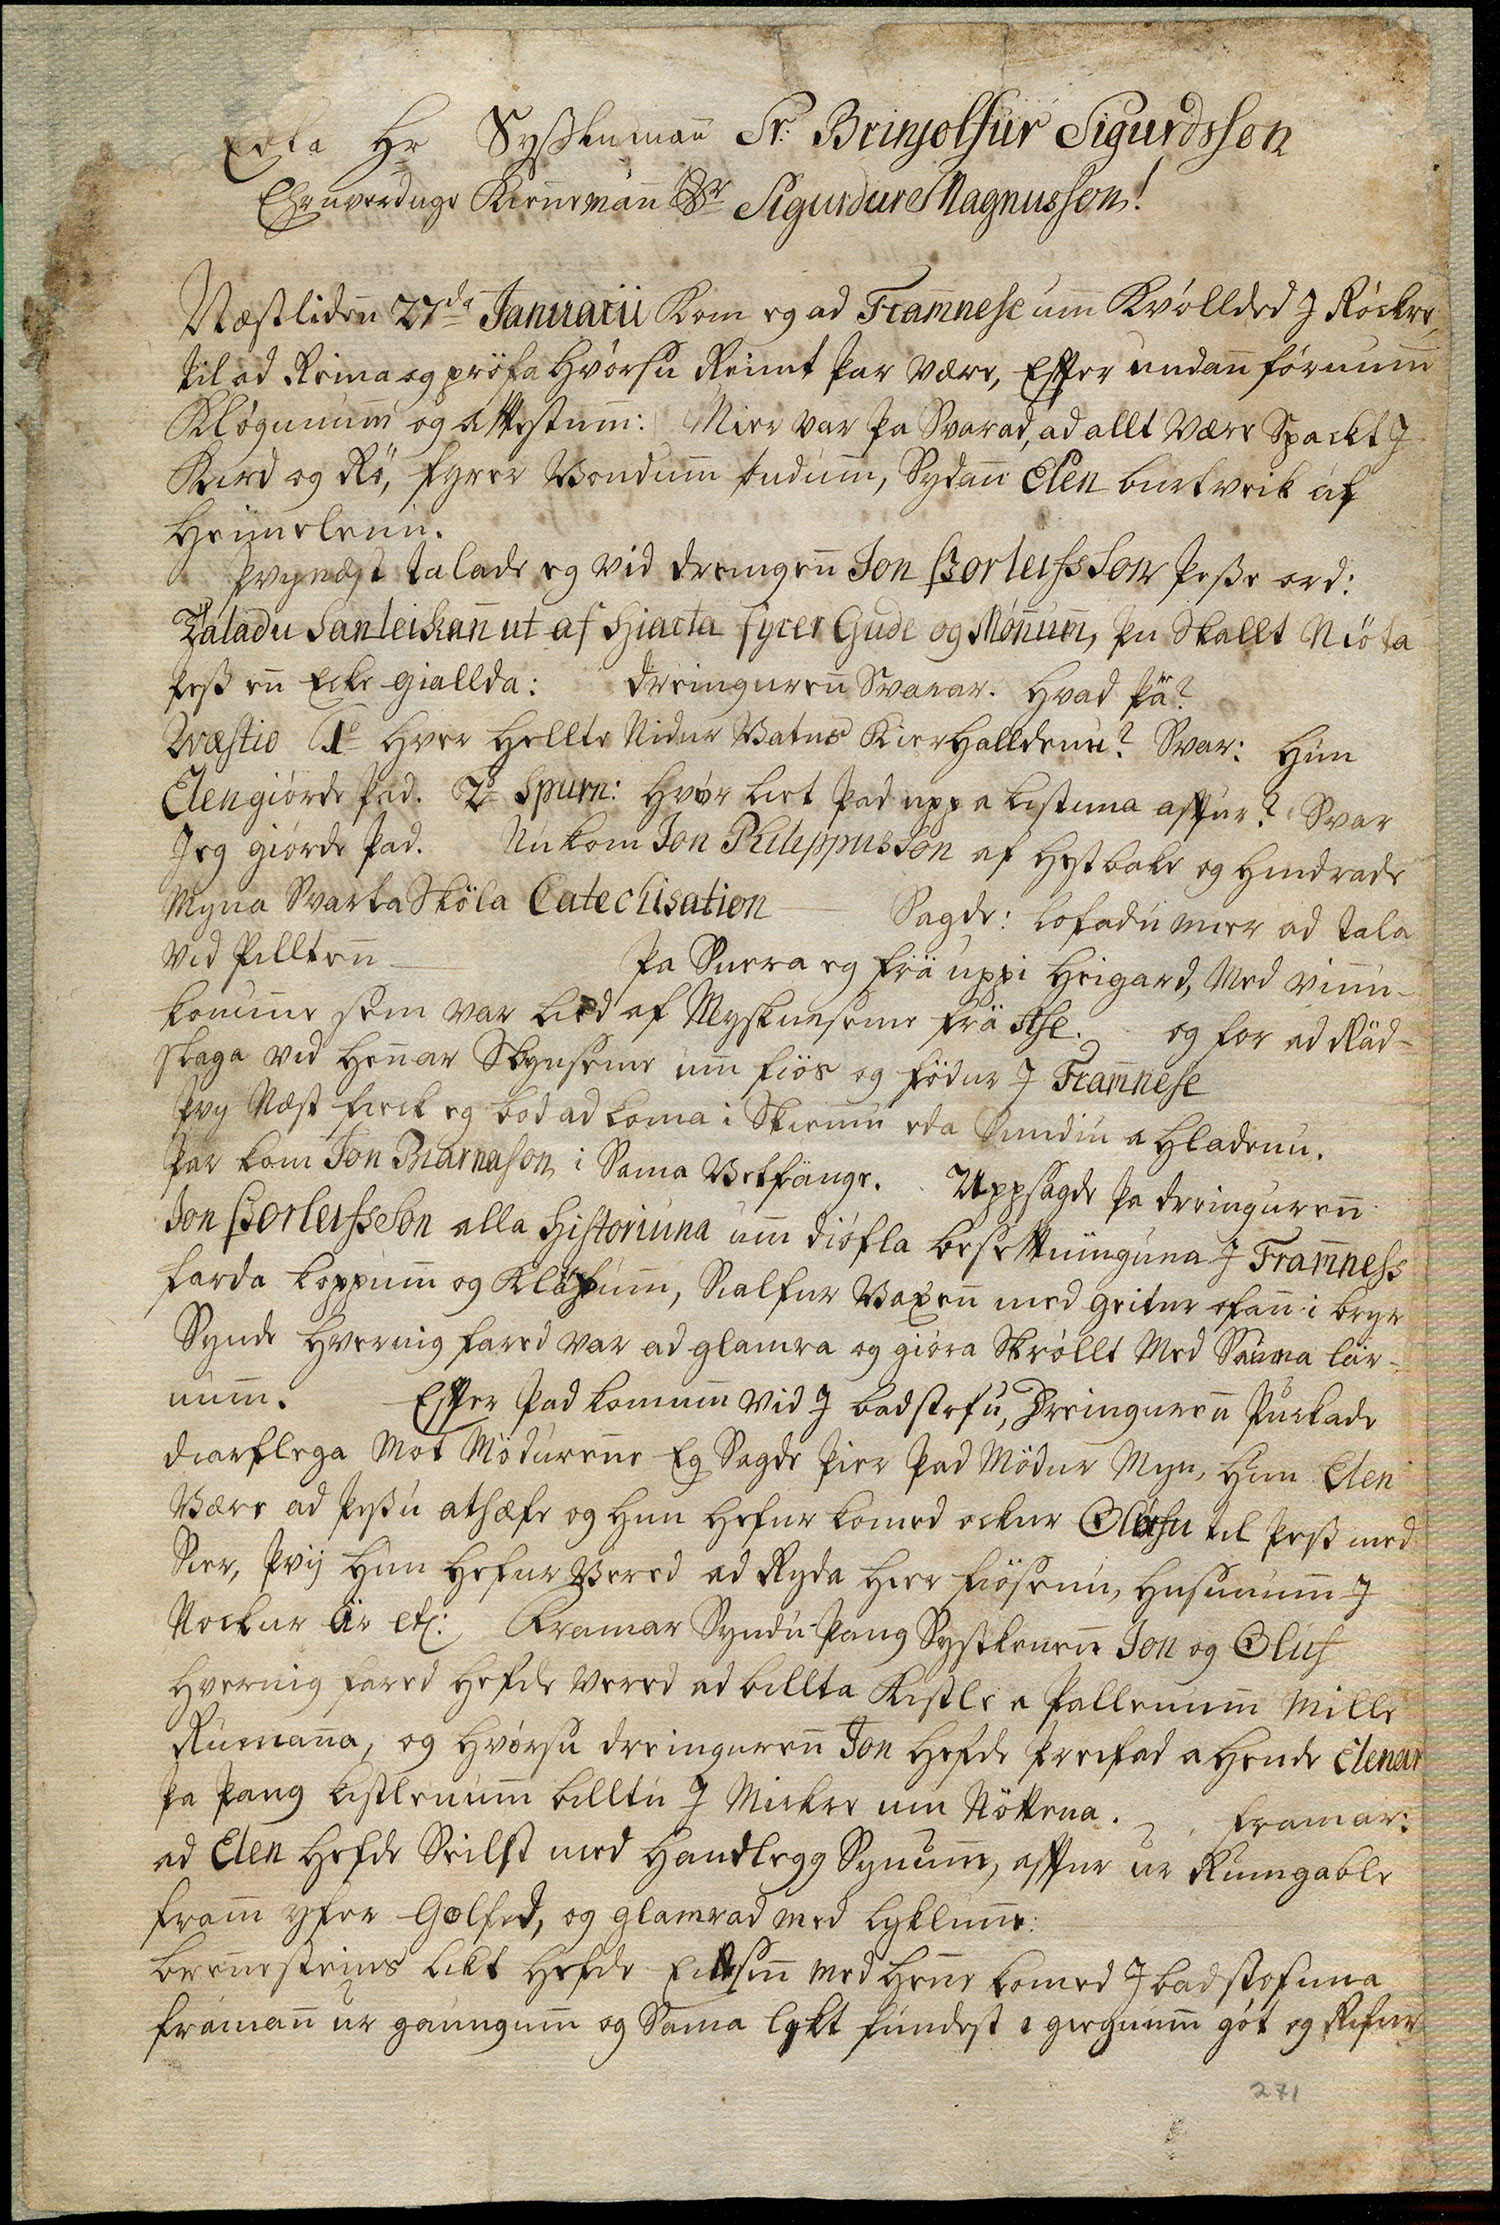 Edla Hr Sysslumann Sr. Brinjolfur Sigurdsson
Ehruverduge Kiennemann Sr Sigurdur Magnusson!
Næstliden 27da Januarii kom eg ad Framnese um Kvölldед J Röckre,
til ad Reina og pröfa hvörsu Reimt þar være, Effter undann förnum
Klögunum og attestum: Mier var þa Svarad, ad allt være Spackt J
Kird og Rö, fyrer Vondum öndum, Sydann Elen burtveik af
heimelenu.
þvynæst talade eg vid dreingenn Jon Þorleifsson þesse ord:
Taladu sanleikann ut af hiarta fyrer Gude og Mönnum, þu skallt Niöta
þess enn Ecke giallda: dreingurenn Svarar. Hvad þä?
Qvæstio 1o Hver hellte Nidur Vatns Kierhalldenu? Svar: Hun
Elen giörde þad. 2o Spurn: hvör liet þad upp a listuna afftur? Svar
Jeg giörde þad. Nu kom Jon Philippusson af hestbake og hindrade
Myna Svarta Sköla Catechisation Sagde: lofadu mier ad tala
vid Pilltenn þa Snera eg frä uppi heigard, Med vinnu-
konunne sem var lied af Myskunseme frä Ase. og for ad Räd-
slaga vid hennar Skynseme um fiös og födur J Framnese
þvy Næst fieck eg bod ad koma i Skiemu eda Smidiu a hladenu.
þar kom Jon Biarnason i Sama Vetfänge. Uppsagde þa dreingurenn
Jon Þorleifsson alla historiuna um diöfla besettninguna J Framness
farda koppum og Kläfum, Sialfur Vaxenn med geitur ofann i bryr
Synde hvernig fared var ad glamra og giöra Skröllt Med Sama lär-
num. Effter þad komum vid J badstofu, Dreingurenn þuckade
diarflega Mot Mödurenne Eg Sagde þier þad Mödur Myn, hun Elen
Være ad þessu athæfe og hun hefur komed ockur Olöfu til þess med
Sier, þvij hun hefur Vered ad Ryda hier fiösenu, husunum J
Nockur är etc: Framar Syndu þaug Systkenenn Jon og Oluf
hvernig fared hefde vered ad billta Kistle a Pallenum Mille
Rumanna, og hvörsu dreingurenn Jon hefde þreifad a hende Elenar
þa þaug kistlenum billtu J Mirkre um Nöttena. Framar:
ad Elen hefde Seilst med handlegg Synum, afftur ur Rumgable
framm yfer Golfed, og glamrad med lyklunne:
brennesteins likt hefde Eitt sinn med henne komed J badstofuna
framann ur gaungum og Sama lykt fundest i gregnum göt og Rifur
271